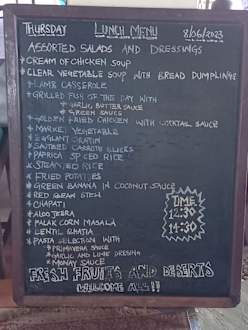 THURSDAY LUNCH MENU 8/06/2023
ASSORTED SALADS AND DRESSINGS
* CREAM OF CHICKEN SOUP
* CLEAR VEGETABLE SOUP WITH BREAD DUMPLINGS
* LAMB CASSEROLE
* GRILLED FISH OF THE DAY WITH
* GARLIC BUTTER SAUCE
* GREEN SAUCE
* GOLDEN FRIED CHICKEN WITH COCKTAIL SAUCE
* MARKET VEGETABLE
* EGGPLANT GRATIN
* SAUTEED CARROTS SLICERS
* PAPRICA SPICED RICE
* STEAMED RICE
* FRIED POTATOES
* GREEN BANANA IN COCONUT SAUCE
* RED BEAN STEW
* CHAPATI
* ALOO JEERA
* PALAK CORN MASALA
* LENTIL BHATIA
* PASTA SELECTION WITH
* PRIMAVERA SAUCE
* GARLIC AND LIME DRESING
* MORNAY SAUCE
TIME
12:30
14:30
FRESH FRUITS AND DESERTS
WELCOME ALL!!